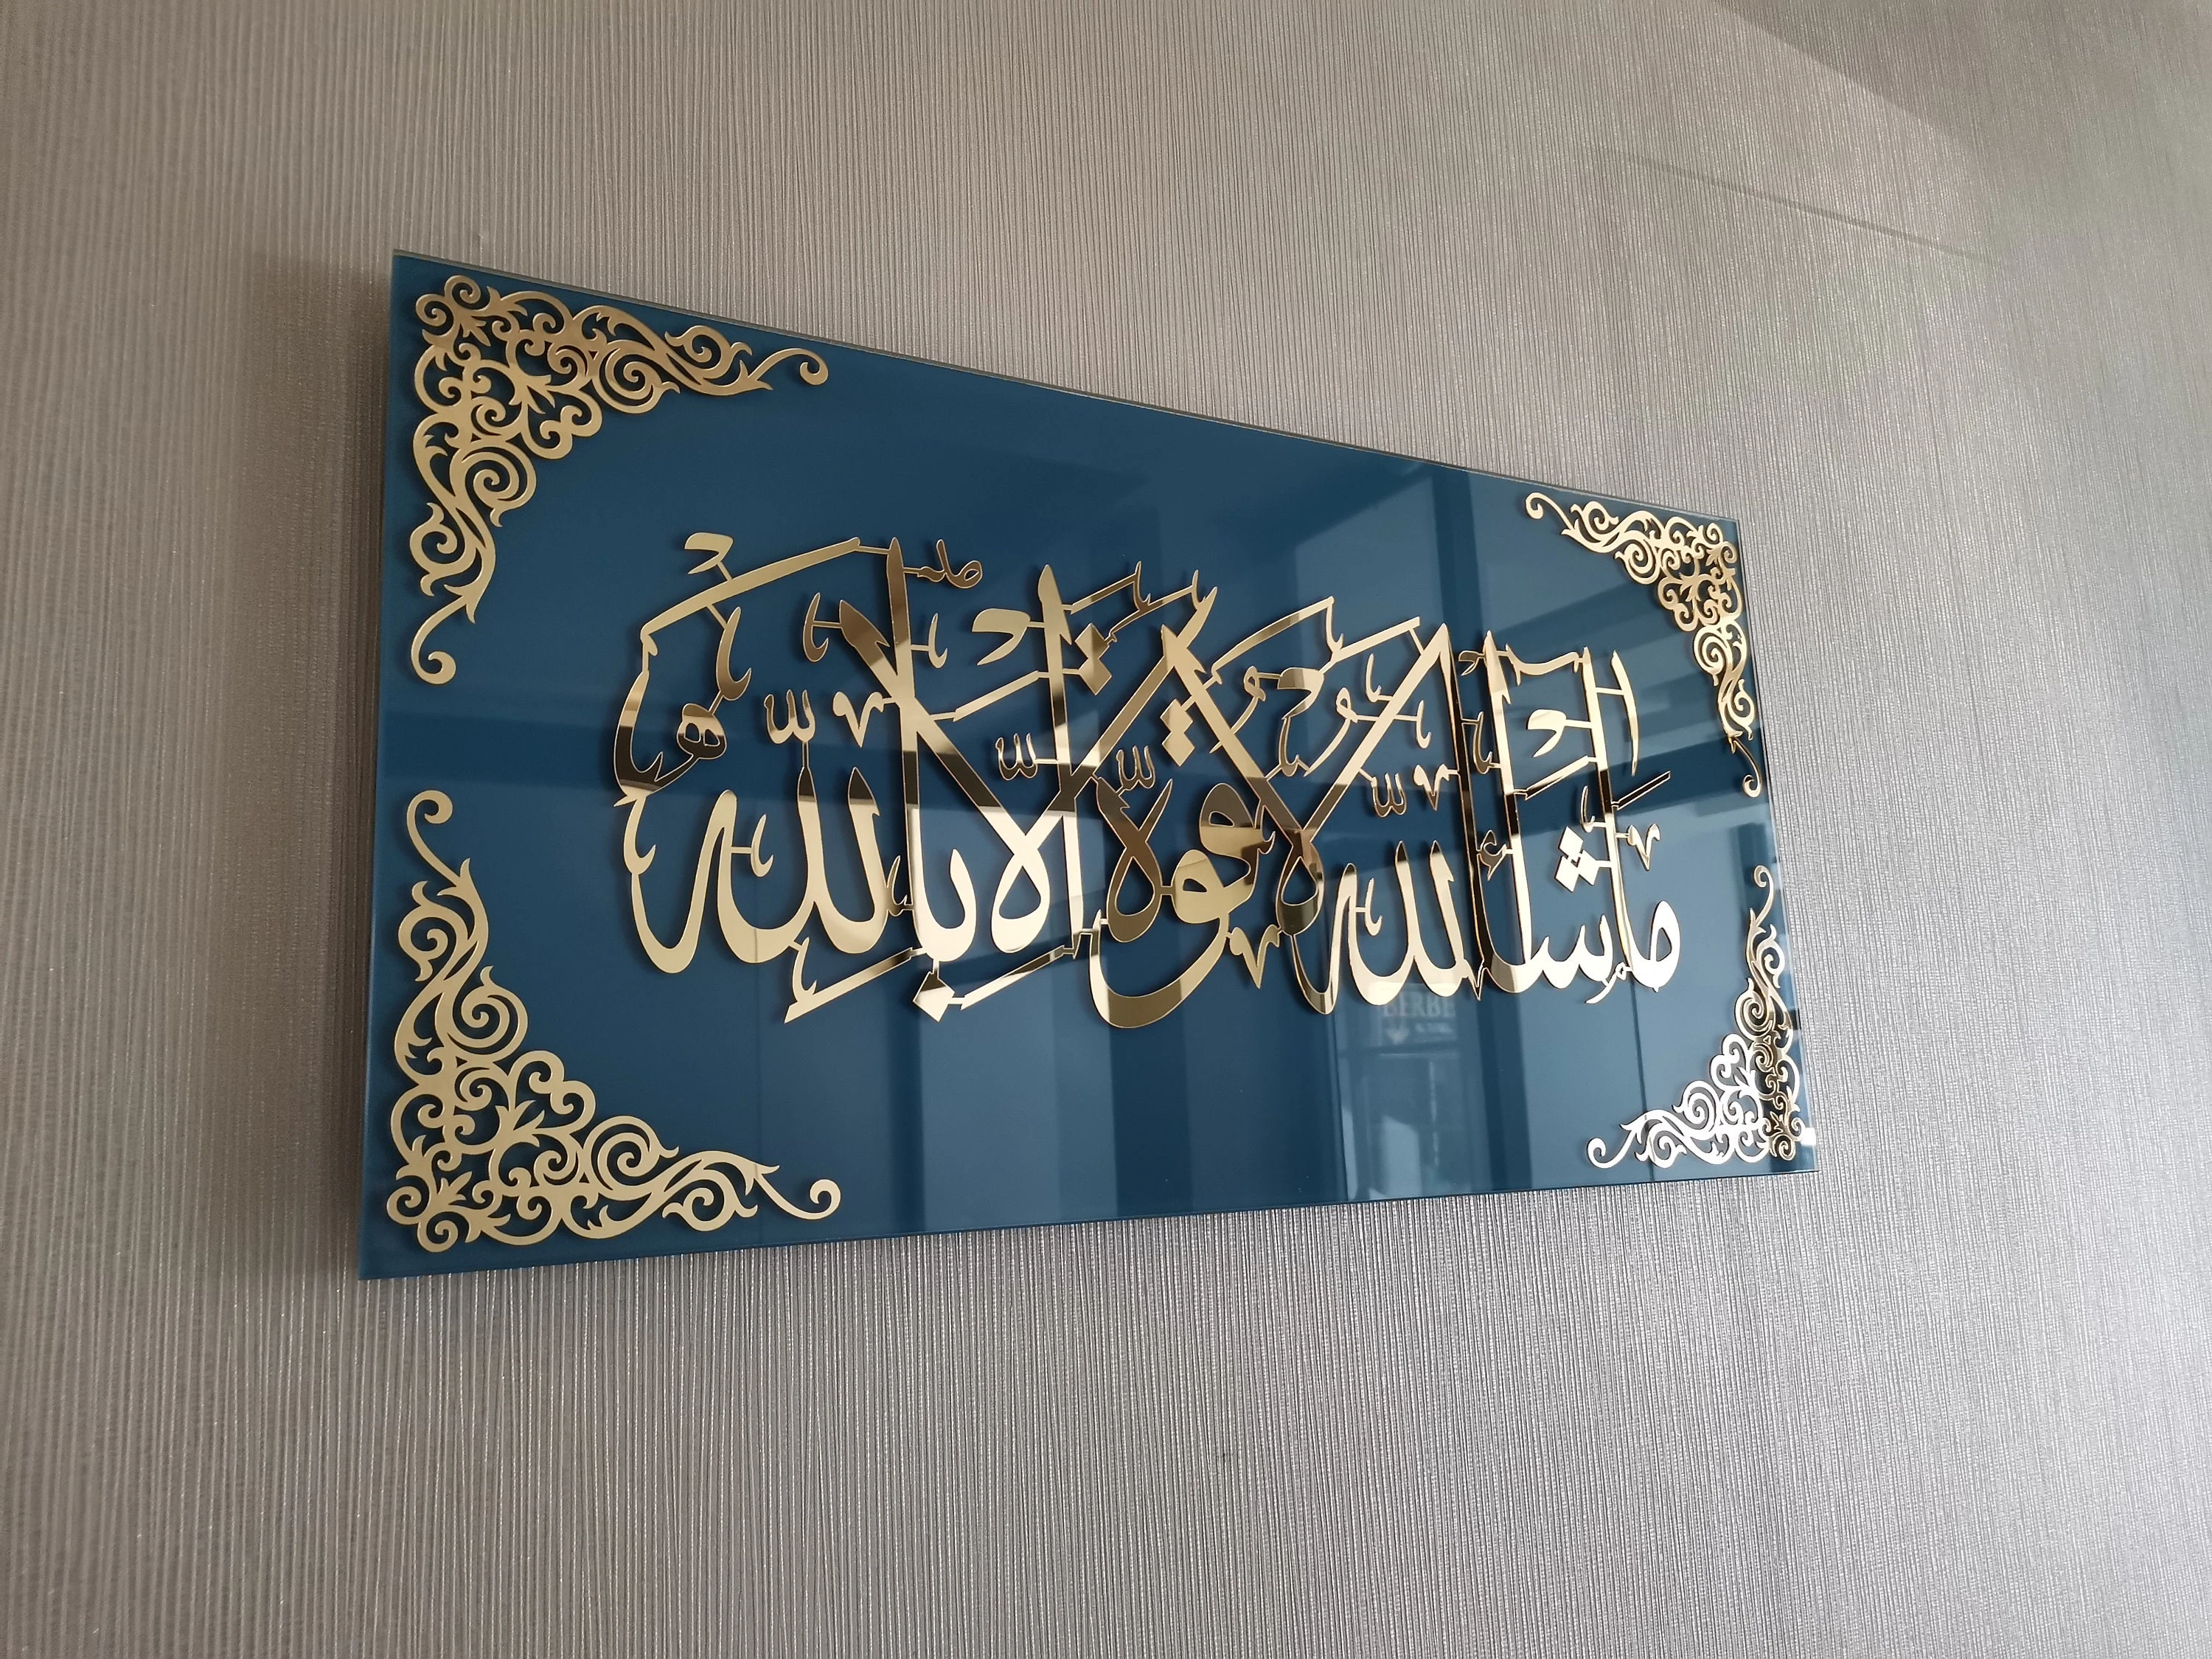 ما شاء الله لا قوة إلا بالله
BERBE